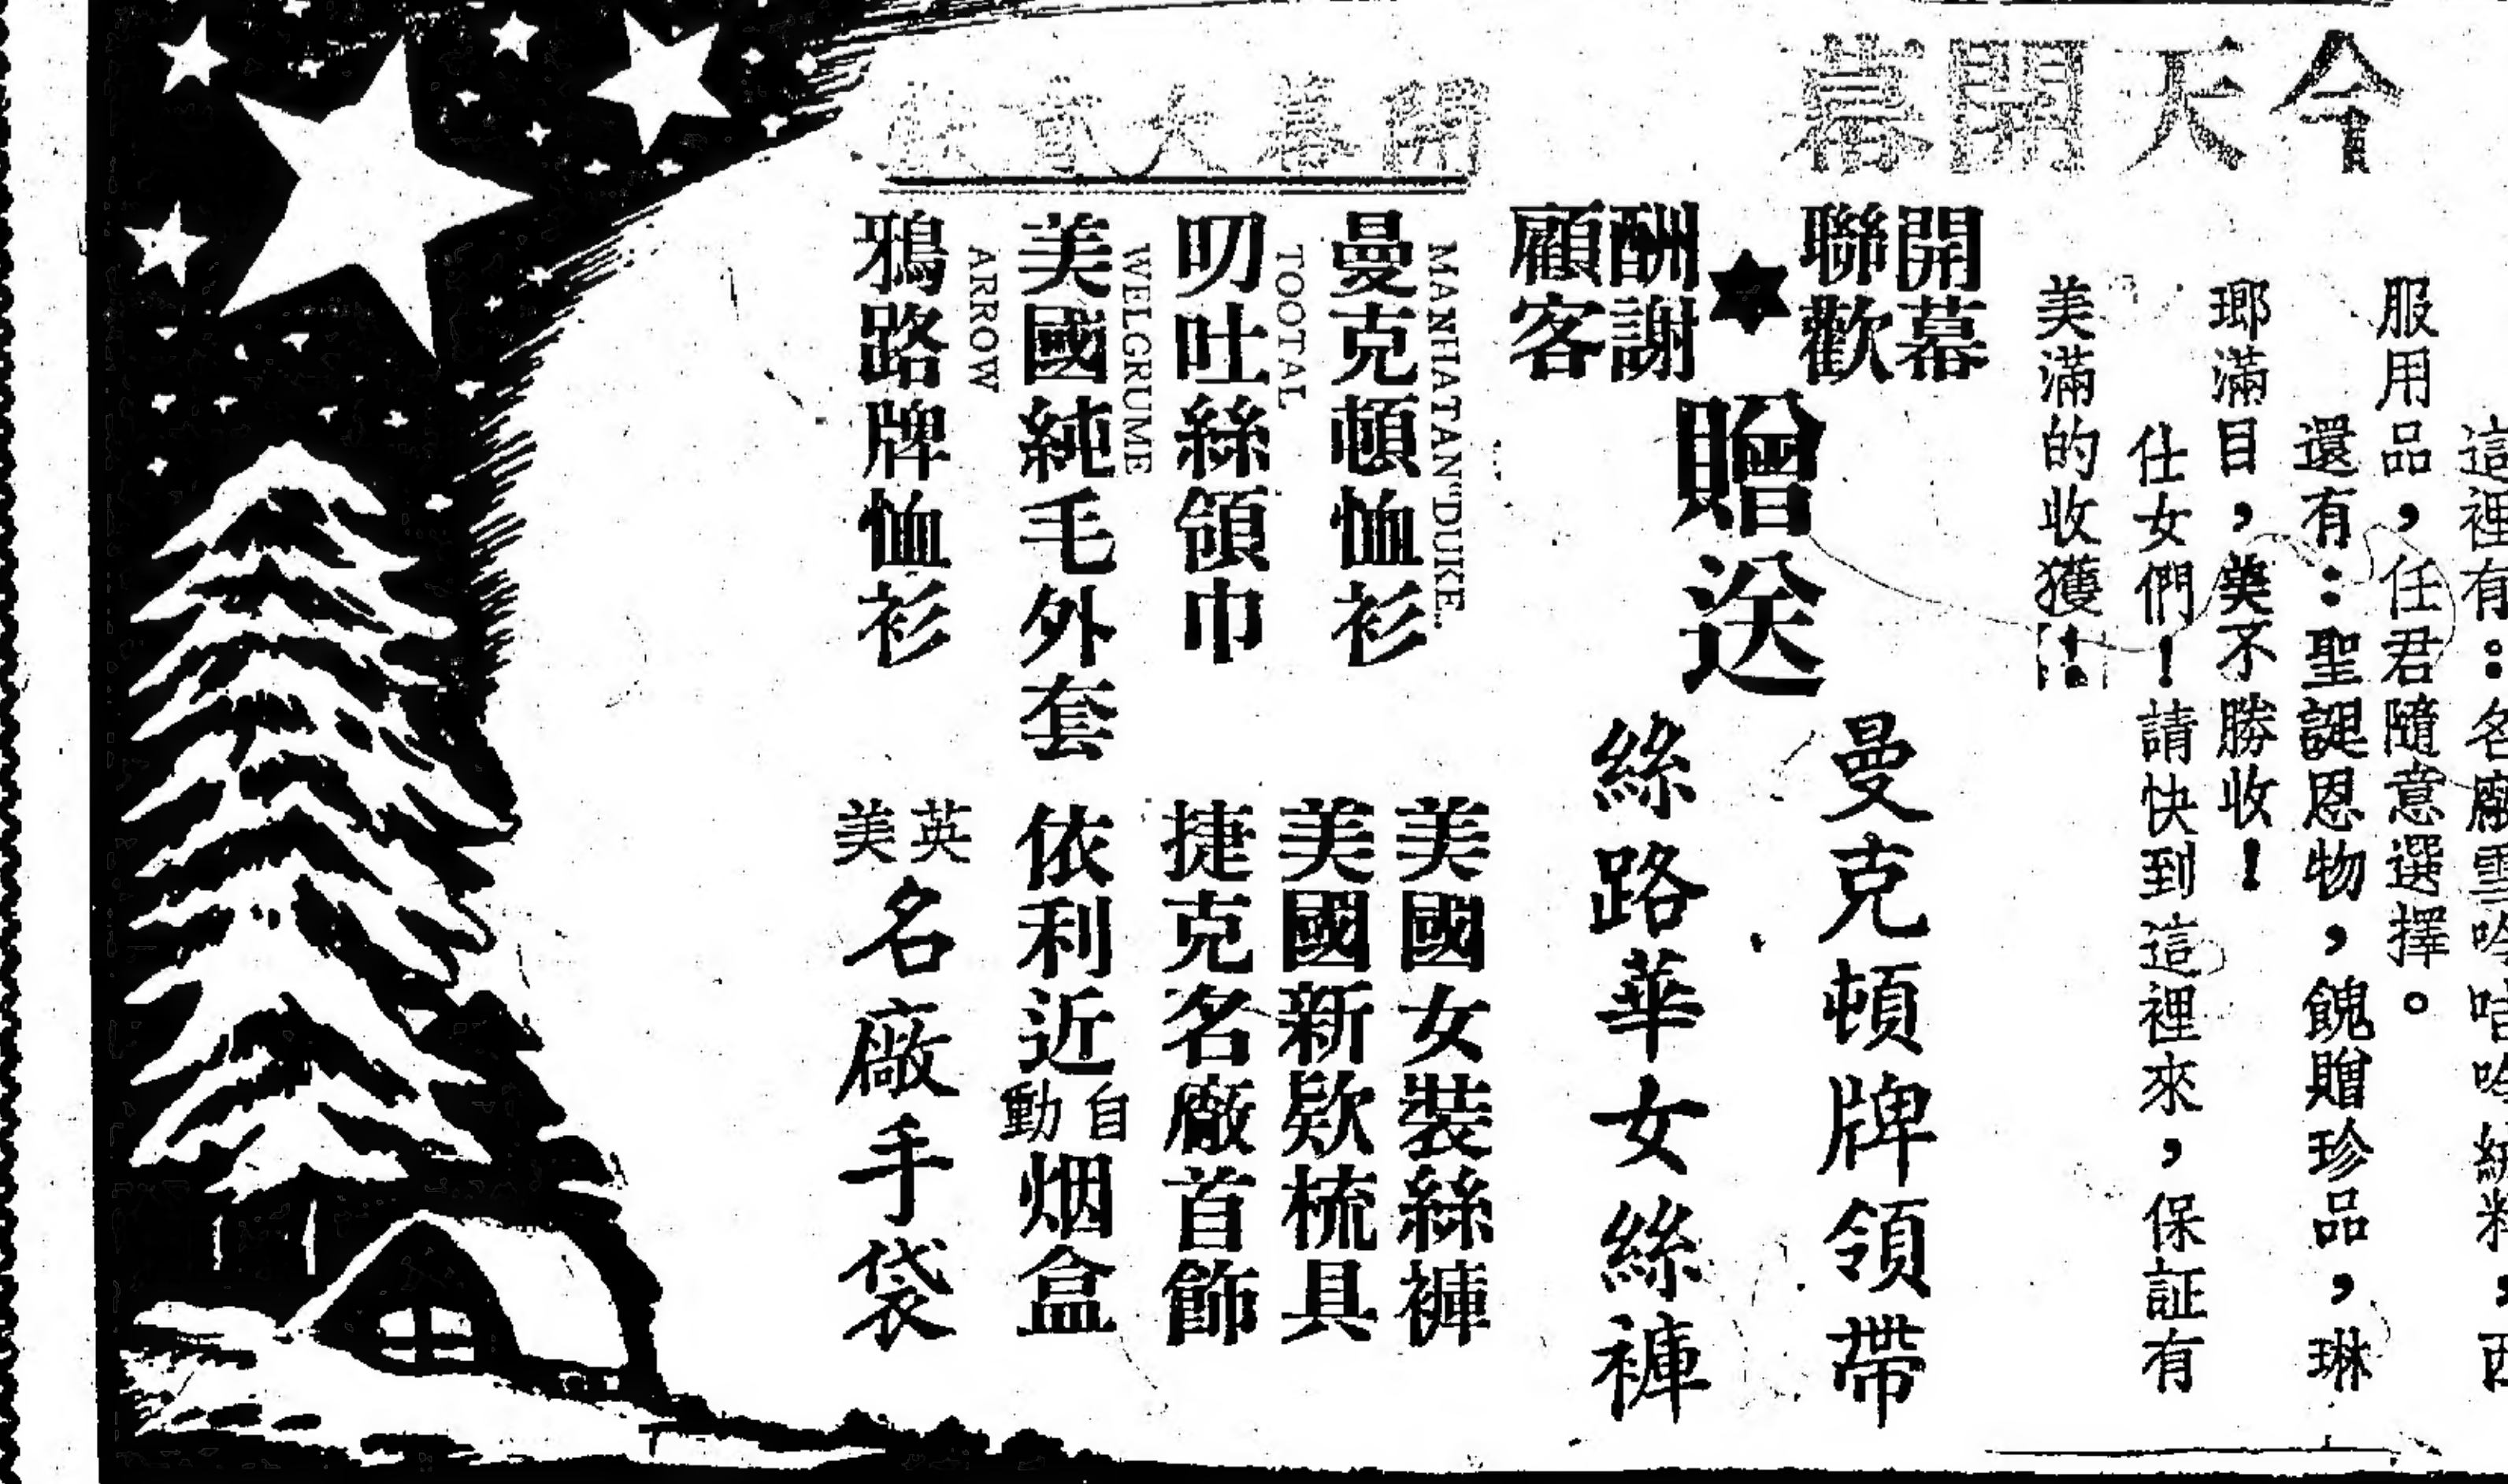 今天開幕
這裡有：名廠雪
服用品，任君隨意選擇。
還有：聖誕恩物，餽贈珍品，琳
瑯滿目，美不勝收！
仕女們！請快到這裡來，保証有
美滿的收獲！
開幕
聯歡
酬謝
顧客
贈送
曼克頓牌領帶
絲路華女絲褲
開幕大貢献
MANHATAN"DUKE.
曼克頓恤衫
TOOTAL
叨吐絲領巾
WELGRUME
美國純毛外套
ARROW
鴉路牌恤衫
美國女裝絲褲
美國新欵梳具
捷克名廠首飾
依利近自動烟盒
英美名廠手袋